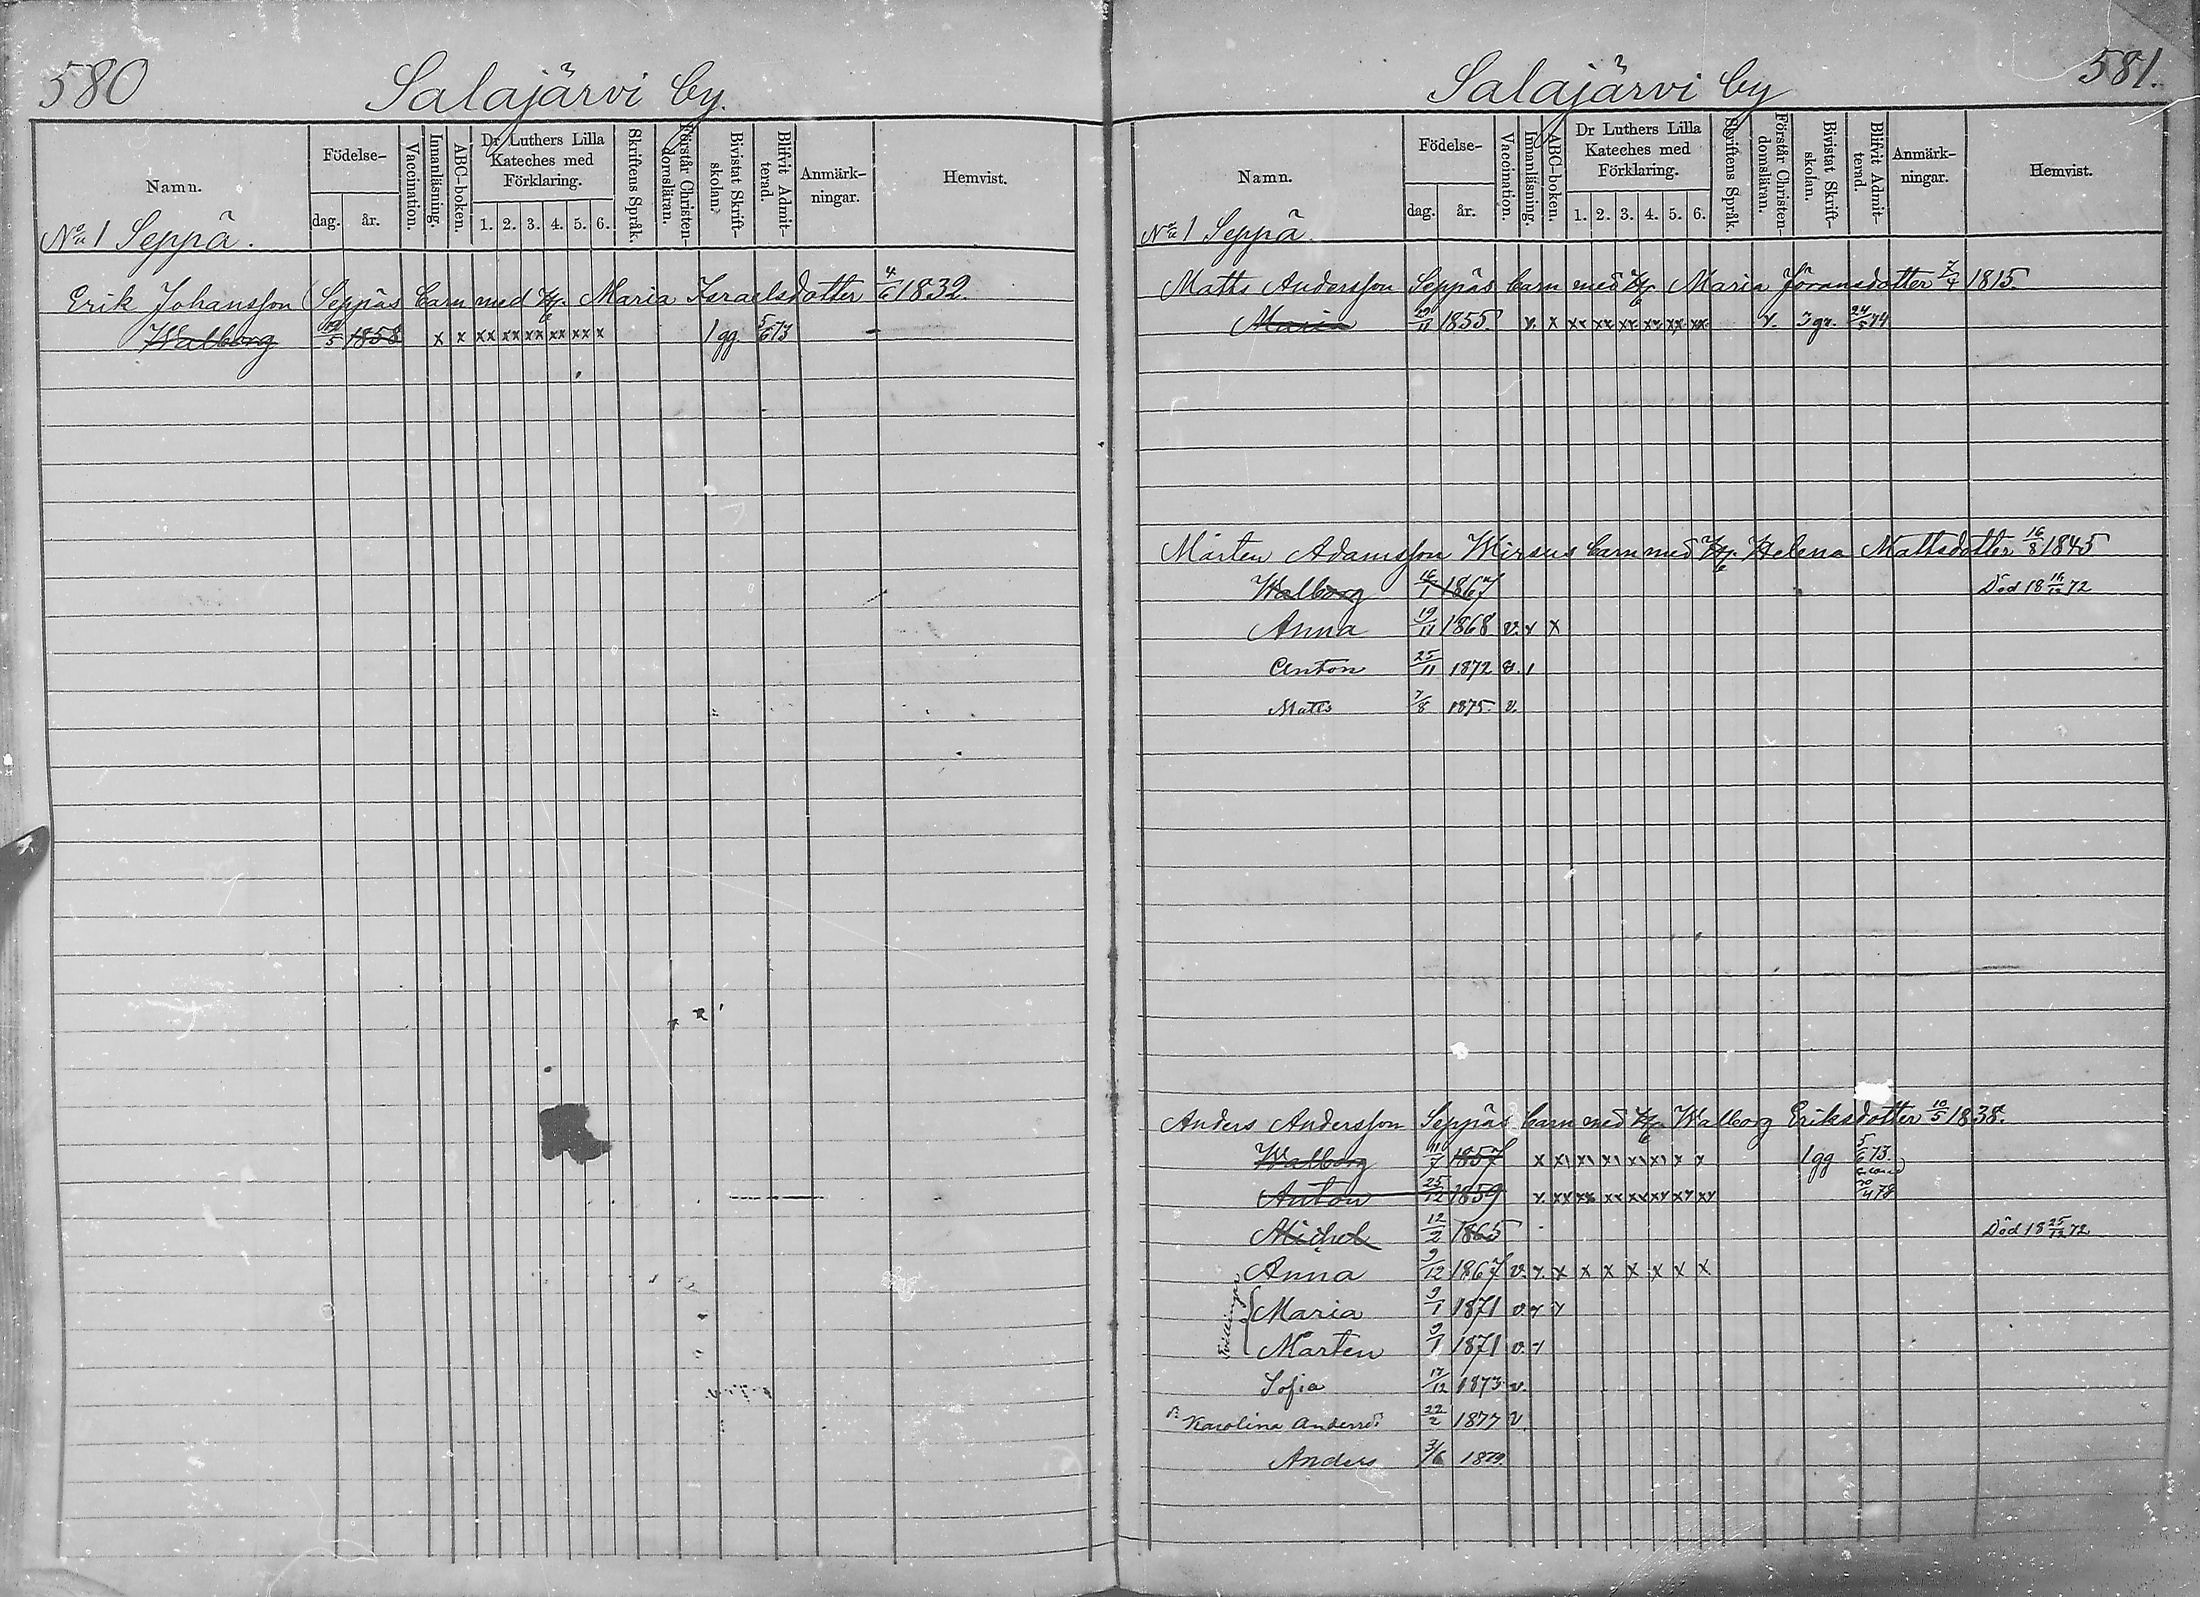 580
Salajärvi by.
Namn. Födelse- dag. år. Vaccination. Innanläsning. ABC-boken. Dr Luthers Lilla Kateches med Förklaring. 1. 2. 3. 4. 5. 6. Skriftens Språk. Förstår Christen-domsläran. Bivistat Skrift-skolan. Blifvit Admit-terad. Anmärk-ningar. Hemvist.
No 1 Seppä.
Erik Johansson Seppäs barn med H. Maria Israelsdotter 4/6 1832.
Walborg 19/5 1858 x x xx xx xx xx xx x 1 gg. 5/6 73
581.
Salajärvi by
Namn. Födelse- dag. år. Vaccination. Innanläsning. ABC-boken. Dr Luthers Lilla Kateches med Förklaring. 1. 2. 3. 4. 5. 6. Skriftens Språk. Förstår Christen-domsläran. Bivistat Skrift-skolan. Blifvit Admit-terad. Anmärk-ningar. Hemvist.
No 1 Seppä
Matts Andersson Seppäs barn med H. Maria Jöransdotter 7/4 1815.
Maria 29/11 1855. x x xx xx xx xx xx xx x. 3 gr. 24/5 74
Mårten Adamsson Wirsus barn med H. Helena Mattsdotter 16/8 1845
Walborg 16/1 1867 Död 18 /12 72
Anna 19/11 1868 v. x x
Anton 25/11 1872 v. 1
Matts 7/8 1875. v.
Anders Andersson Seppäs barn med H. Walborg Eriksdotter 10/5 1838.
Walborg 11/7 1857 x x1 x1 x1 x1 x1 x x 1 gg 5/6 73.
Anton 25/12 1859 x. xx xx xx xx xx xx xx 20/4 78
Michel 12/2 1865 Död 18 25/12 72
Anna 9/12 1867 v. x. x x x x x x x
Tvillingar
Maria 9/1 1871 v. x x
Mårten 9/1 1871 v. x
Sofia 17/12 1873 v.
Karolina Andersd:r 22/2 1877 v
Anders 3/6 1879.